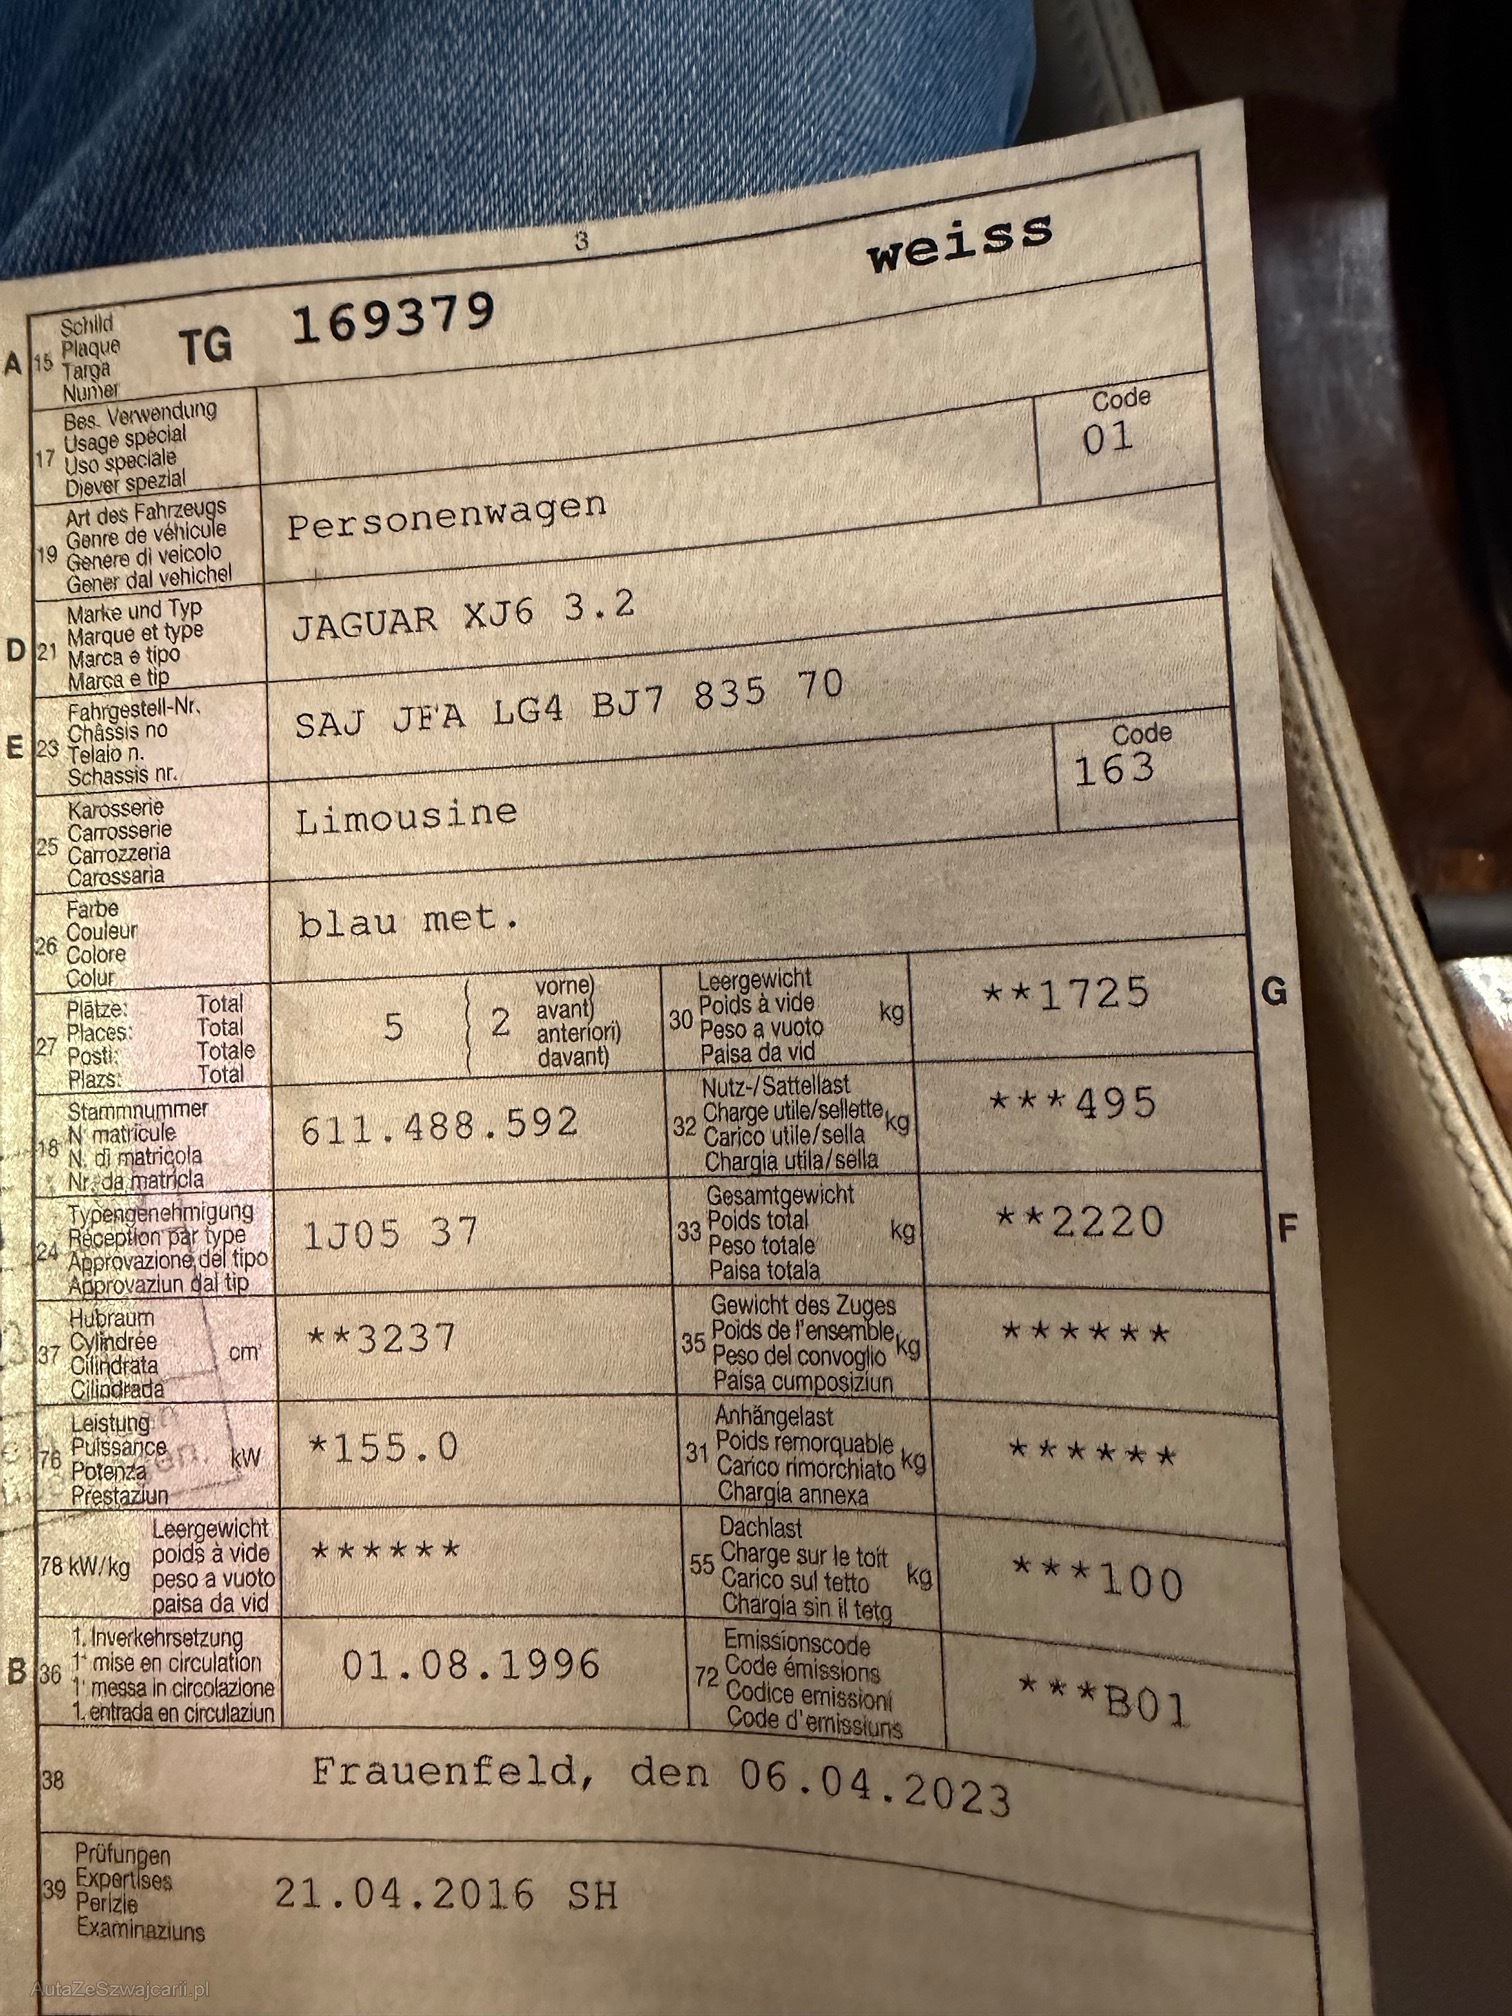 3
A 15 Schild Plaque Targa Numer TG 169379 weiss
17 Bes. Verwendung
Usage spécial
Uso speciale
Diever spezial
19 Art des Fahrzeugs
Genre de véhicule
Genere di veicolo
Gener dal vehichel
Personenwagen
Code
01
D 21 Marke und Typ
Marque et type
Marca e tipo
Marca e tip
JAGUAR XJ6 3.2
E 23 Fahrgestell-Nr.
Châssis no
Telaio n.
Schassis nr.
SAJ JFA LG4 BJ7 835 70
25 Karosserie
Carrosserie
Carrozzeria
Carossaria
Limousine
Code
163
26 Farbe
Couleur
Colore
Colur
blau met.
27 Plätze: Total
Places: Total
Posti: Totale
Plazs: Total
5 ( 2
vorne)
avant)
anteriori)
davant)
30 Leergewicht
Poids à vide
Peso a vuoto
Paisa da vid
kg
**1725
G
18 Stammnummer
N° matricule
N. di matricola
Nr. da matricla
611.488.592
32 Nutz-/Sattellast
Charge utile/sellette
Carico utile/sella
Chargia utila/sella
kg
***495
24 Typengenehmigung
Réception par type
Approvazione del tipo
Approvaziun dal tip
1J05 37
33 Gesamtgewicht
Poids total
Peso totale
Paisa totala
kg
**2220
F
37 Hubraum
Cylindrée
Cilindrata
Cilindrada
cm³
**3237
35 Gewicht des Zuges
Poids de l'ensemble
Peso del convoglio
Paisa cumposiziun
kg
******
76 Leistung
Puissance
Potenza
Prestaziun
kW
*155.0
31 Anhängelast
Poids remorquable
Carico rimorchiato
Chargia annexa
kg
******
78 kW/kg
Leergewicht
poids à vide
peso a vuoto
paisa da vid
******
55 Dachlast
Charge sur le toit
Carico sul tetto
Chargia sin il tetg
kg
***100
B 36 1. Inverkehrsetzung
1° mise en circulation
1° messa in circolazione
1. entrada en circulaziun
01.08.1996
72 Emissionscode
Code émissions
Codice emissioni
Code d'emissiuns
***B01
38 Frauenfeld, den 06.04.2023
39 Prüfungen
Expertises
Perizie
Examinaziuns
21.04.2016 SH
AutaZeSzwajcarii.pl